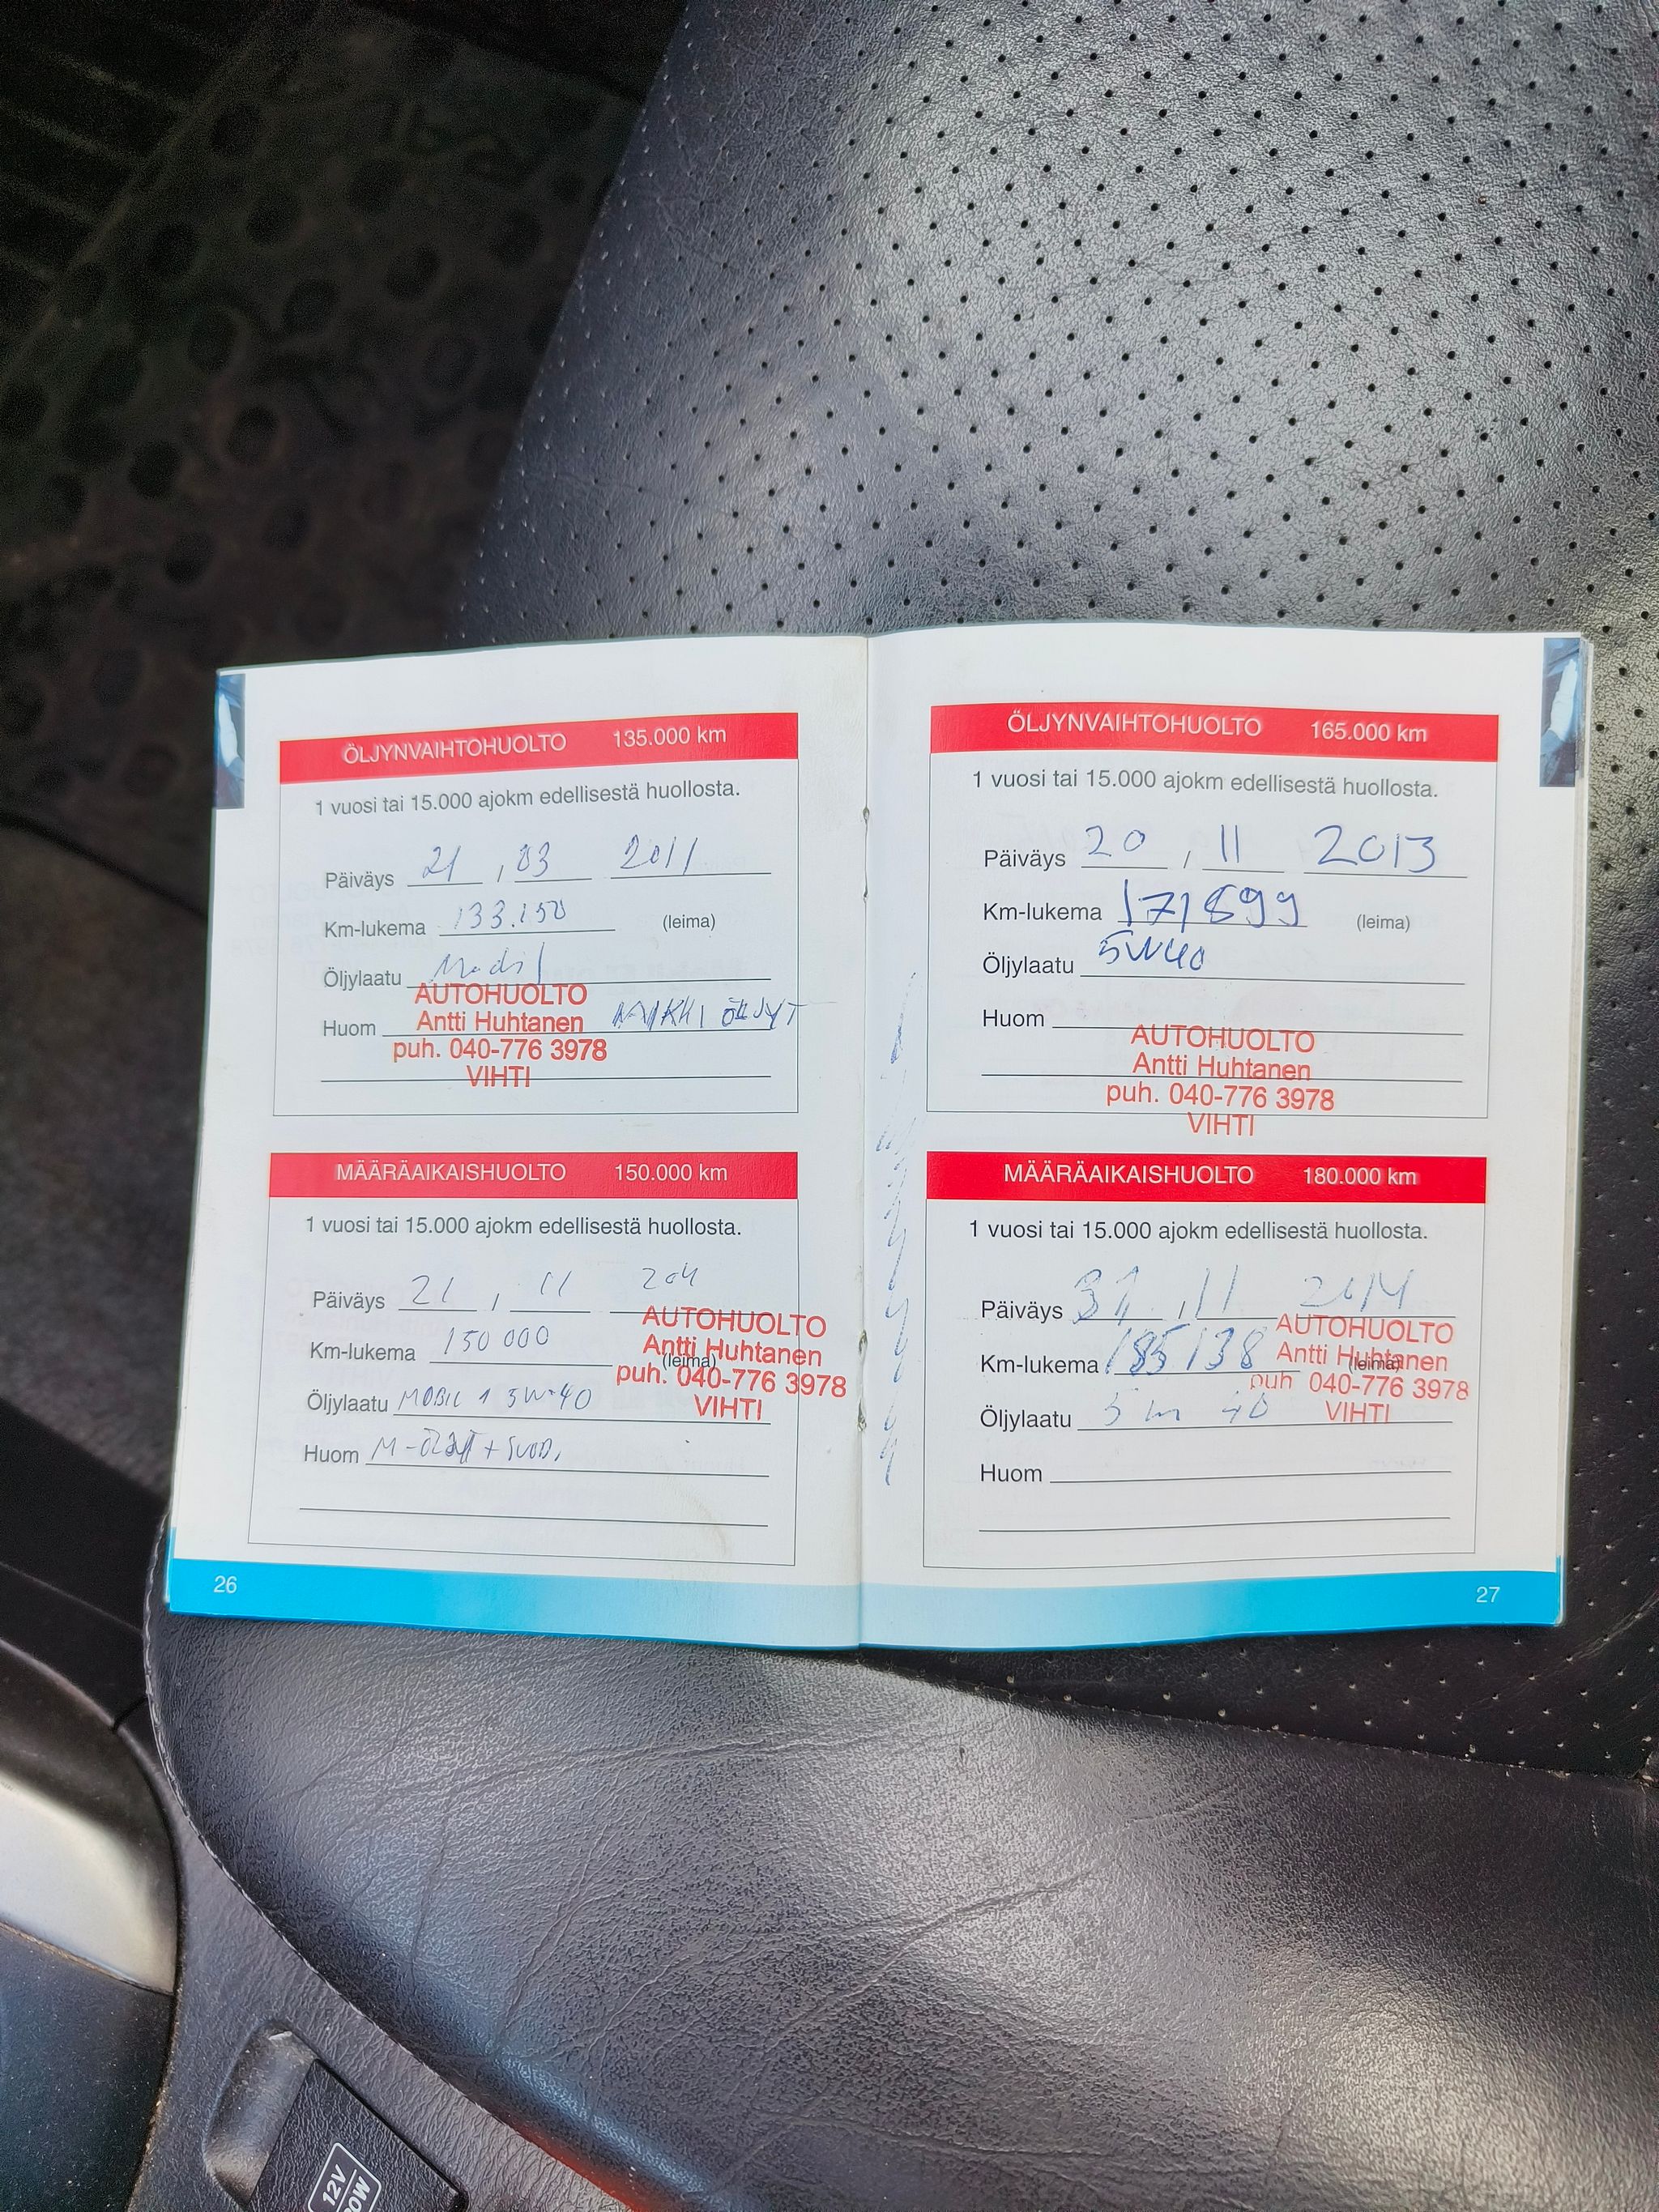 ÖLJYNVAIHTOHUOLTO 135.000 km
1 vuosi tai 15.000 ajokm edellisestä huollosta.
Päiväys 21 , 03 2011
Km-lukema 133.150 (leima)
Öljylaatu
Huom KAIKKI ÖLJYT
AUTOHUOLTO
Antti Huhtanen
puh. 040-776 3978
VIHTI
MÄÄRÄAIKAISHUOLTO 150.000 km
1 vuosi tai 15.000 ajokm edellisestä huollosta.
Päiväys 21 , 11
Km-lukema 150 000 (leima)
Öljylaatu MOBIL 1 5W-40
Huom M-ÖLJYT + SUOD.
AUTOHUOLTO
Antti Huhtanen
puh. 040-776 3978
VIHTI
26
ÖLJYNVAIHTOHUOLTO 165.000 km
1 vuosi tai 15.000 ajokm edellisestä huollosta.
Päiväys 20 , 11 2013
Km-lukema 171899 (leima)
Öljylaatu 5W40
Huom
AUTOHUOLTO
Antti Huhtanen
puh. 040-776 3978
VIHTI
MÄÄRÄAIKAISHUOLTO 180.000 km
1 vuosi tai 15.000 ajokm edellisestä huollosta.
Päiväys , 11 2014
Km-lukema 185138 (leima)
Öljylaatu 5 W 40
Huom
AUTOHUOLTO
Antti Huhtanen
puh 040-776 3978
VIHTI
27
12V